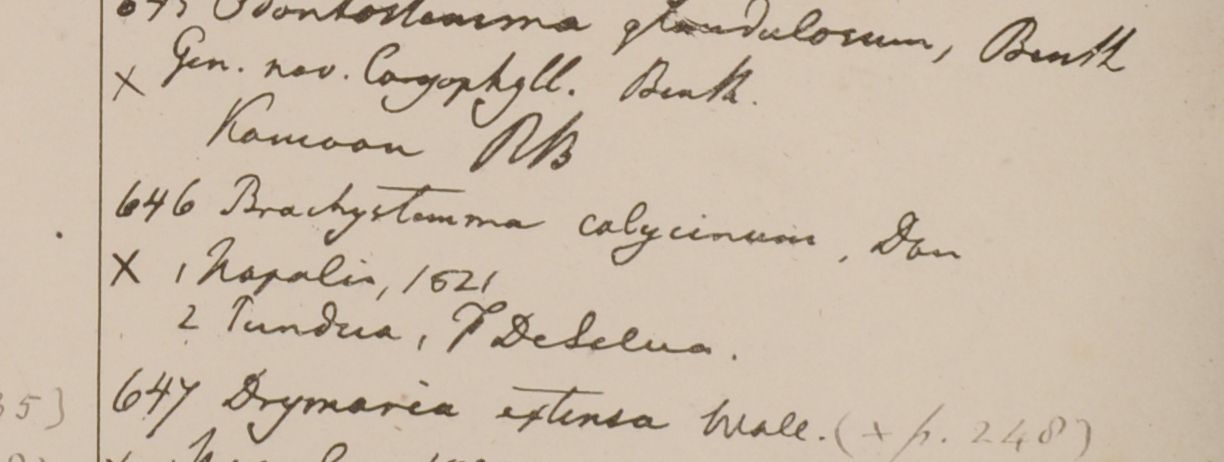 645 Odontostemma glandulosum, Benth
X Gen. nov. Caryophyll. Benth.
Kamoon RB
646 Brachystemma calycinum, Don
X 1 Napalia, 1821
2 Tundua, F DeSilva.
35)
647 Drymaria extensa Wall. (x p. 248)